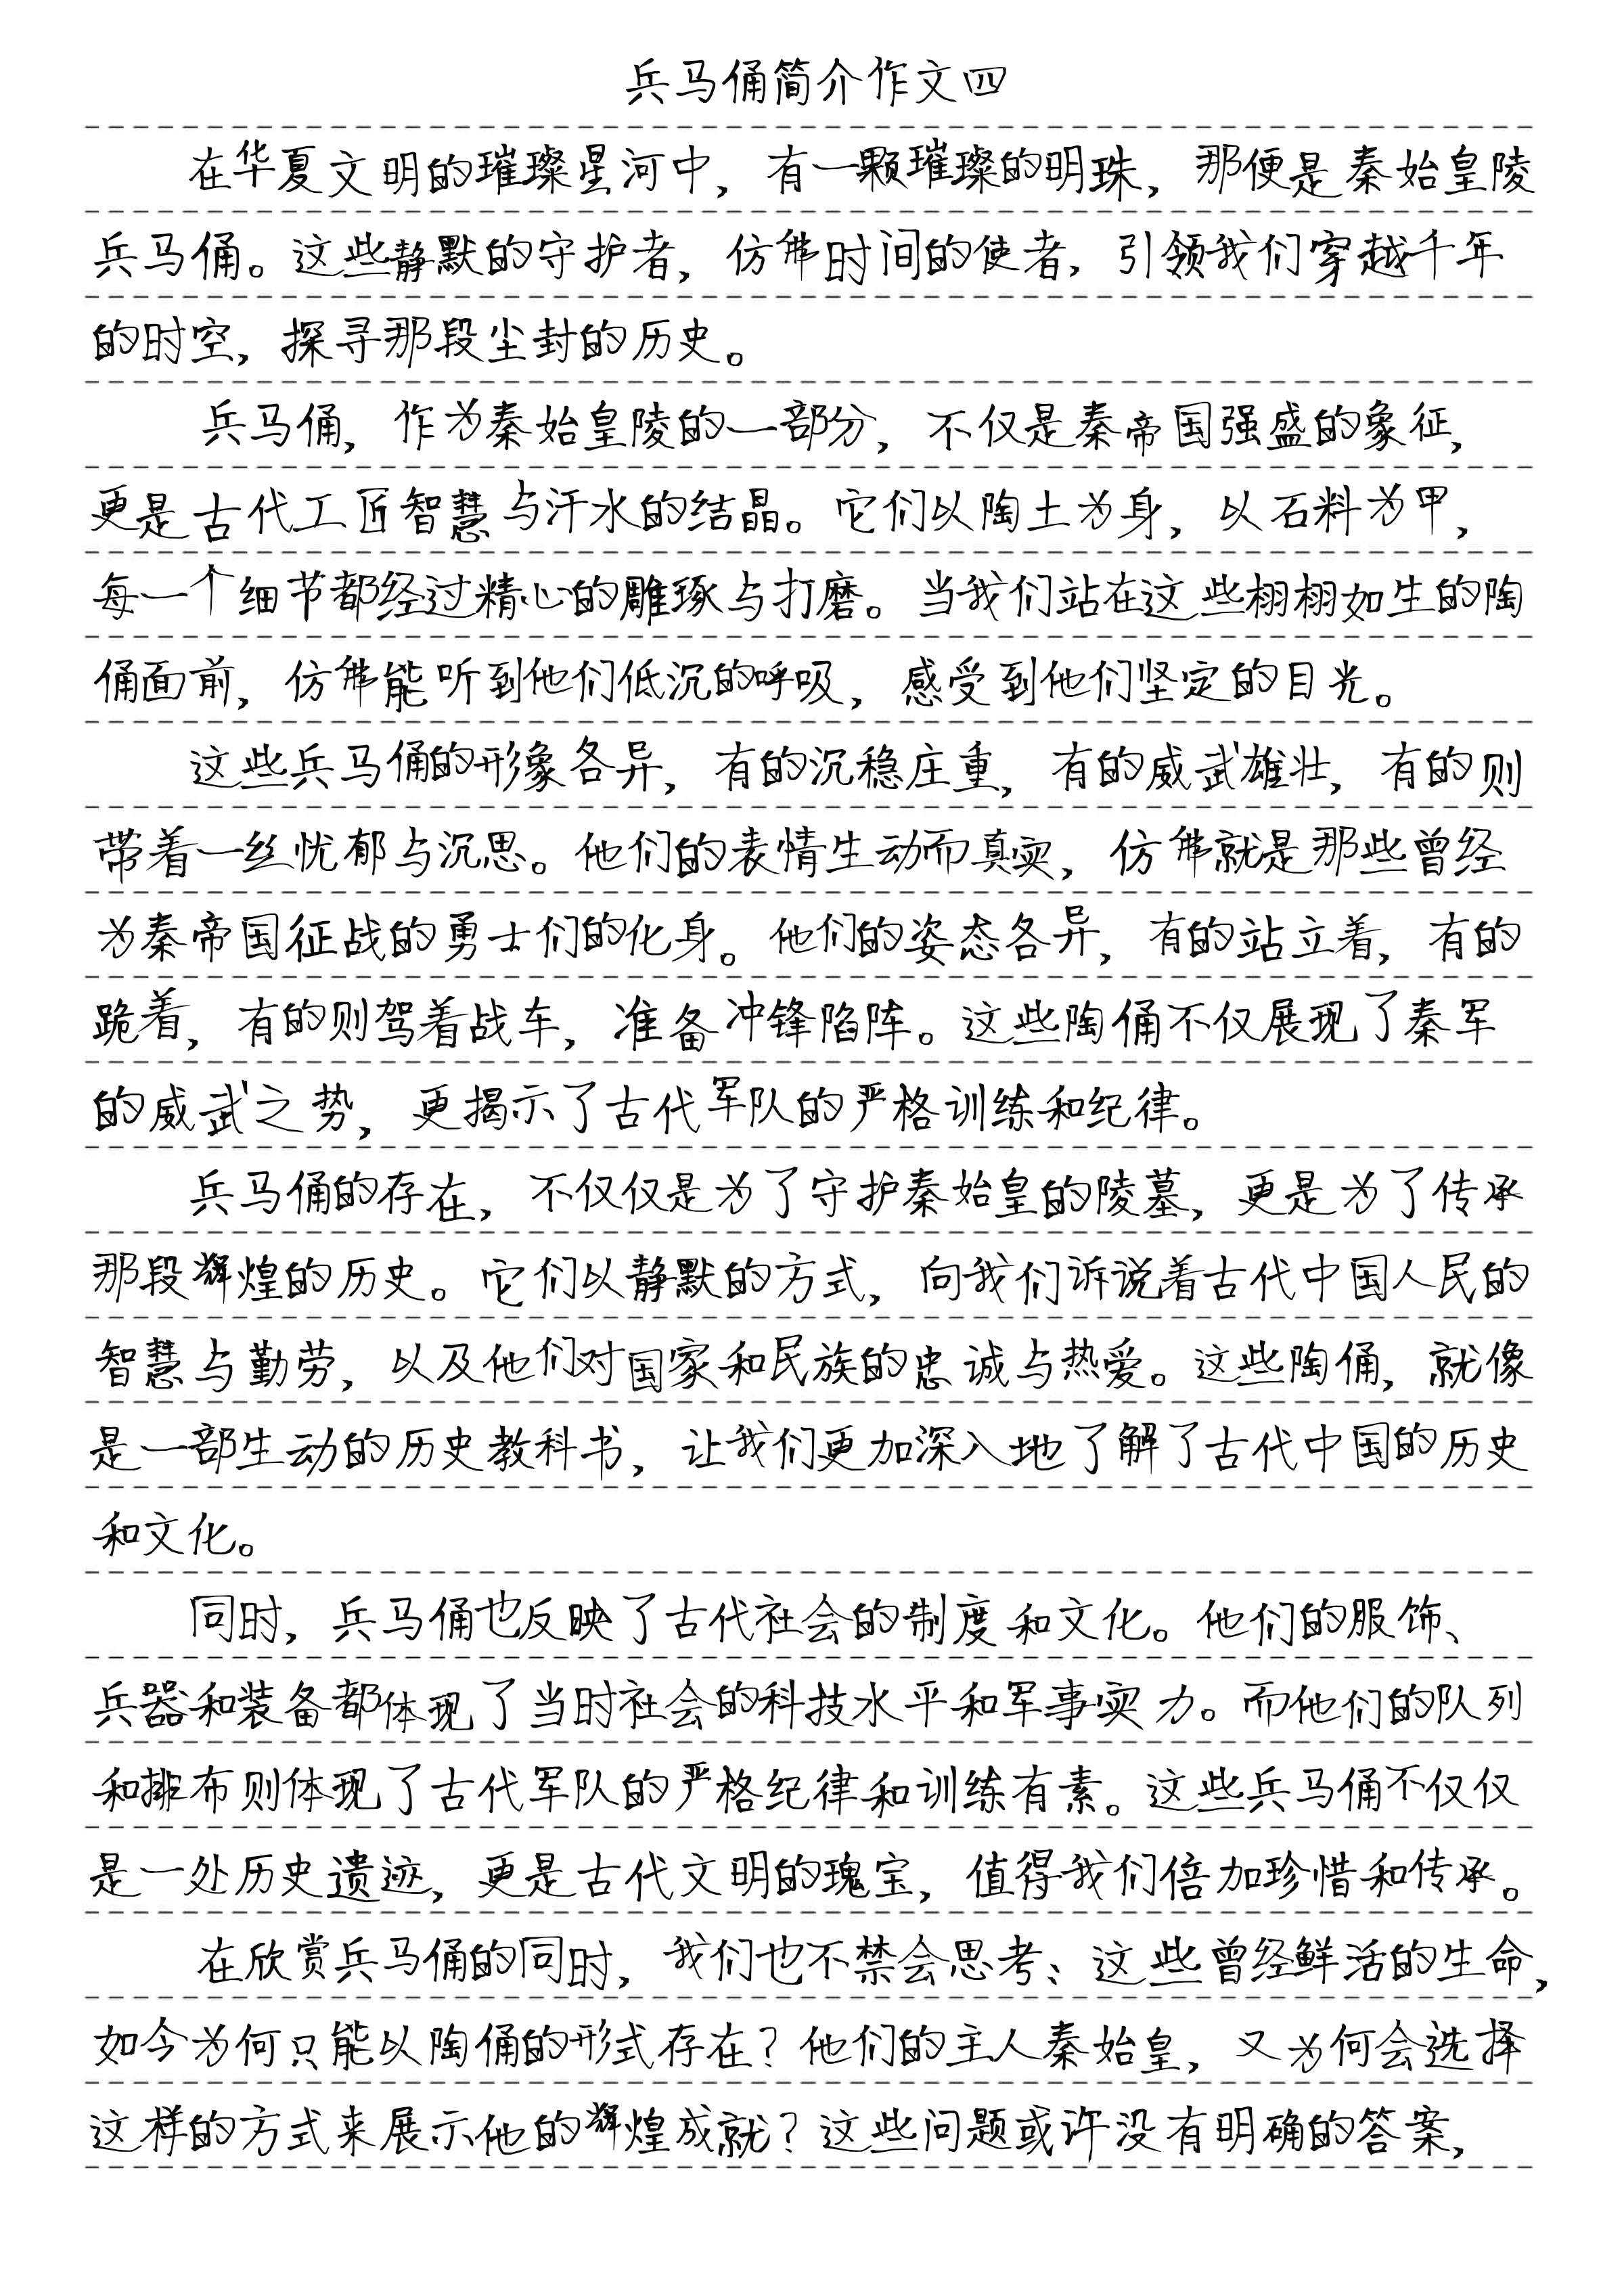 兵马俑简介作文四
在华夏文明的璀璨星河中，有一颗璀璨的明珠，那便是秦始皇陵
兵马俑。这些静默的守护者，仿佛时间的使者，引领我们穿越千年
的时空，探寻那段尘封的历史。
兵马俑，作为秦始皇陵的一部分，不仅是秦帝国强盛的象征，
更是古代工匠智慧与汗水的结晶。它们以陶土为身，以石料为甲，
每一个细节都经过精心的雕琢与打磨。当我们站在这些栩栩如生的陶
俑面前，仿佛能听到他们低沉的呼吸，感受到他们坚定的目光。
这些兵马俑的形象各异，有的沉稳庄重，有的威武雄壮，有的则
带着一丝忧郁与沉思。他们的表情生动而真实，仿佛就是那些曾经
为秦帝国征战的勇士们的化身。他们的姿态各异，有的站立着，有的
跪着，有的则驾着战车，准备冲锋陷阵。这些陶俑不仅展现了秦军
的威武之势，更揭示了古代军队的严格训练和纪律。
兵马俑的存在，不仅仅是为了守护秦始皇的陵墓，更是为了传承
那段辉煌的历史。它们以静默的方式，向我们诉说着古代中国人民的
智慧与勤劳，以及他们对国家和民族的忠诚与热爱。这些陶俑，就像
是一部生动的历史教科书，让我们更加深入地了解了古代中国的历史
和文化。
同时，兵马俑也反映了古代社会的制度和文化。他们的服饰、
兵器和装备都体现了当时社会的科技水平和军事实力。而他们的队列
和排布则体现了古代军队的严格纪律和训练有素。这些兵马俑不仅仅
是一处历史遗迹，更是古代文明的瑰宝，值得我们倍加珍惜和传承。
在欣赏兵马俑的同时，我们也不禁会思考：这些曾经鲜活的生命，
如今为何只能以陶俑的形式存在？他们的主人秦始皇，又为何会选择
这样的方式来展示他的辉煌成就？这些问题或许没有明确的答案，